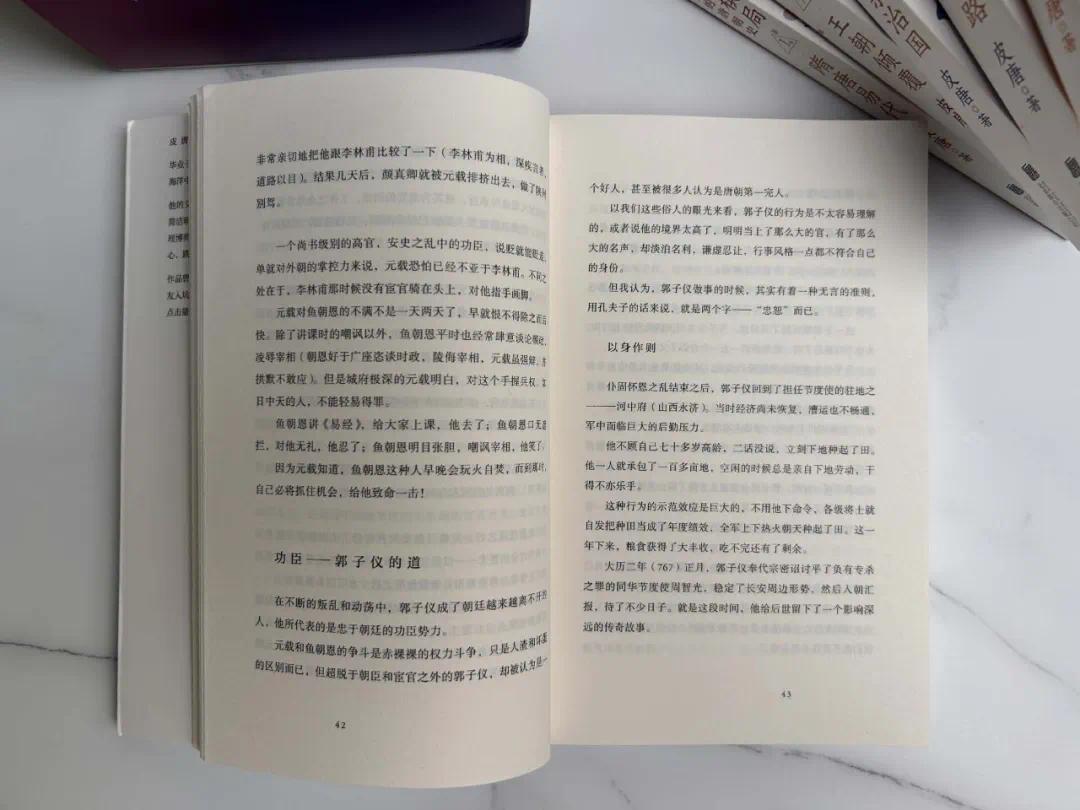 隋唐易代
王朝倾覆
皮唐 著
治国
皮唐 著
路
皮唐 著
唐 著
皮 唐
毕业于
海洋中
他的文
简洁明
理博弈
作品曾
友入坑
点击量
非常亲切地把他跟李林甫比较了一下（李林甫为相，深疾言者，
道路以目）。结果几天后，颜真卿就被元载排挤出去，做了陕州
别驾。
一个尚书级别的高官，安史之乱中的功臣，说贬就能贬走，
单就对外朝的掌控力来说，元载恐怕已经不亚于李林甫。不同之
处在于，李林甫那时候没有宦官骑在头上，对他指手画脚。
元载对鱼朝恩的不满不是一天两天了，早就恨不得除之而后
快。除了讲课时的嘲讽以外，鱼朝恩平时也经常肆意谈论朝政，
凌辱宰相（朝恩好于广座恣谈时政，陵侮宰相，元载虽强辩，亦
拱默不敢应）。但是城府极深的元载明白，对这个手握兵权、如
日中天的人，不能轻易得罪。
鱼朝恩讲《易经》，给大家上课，他去了；鱼朝恩口无遮
拦，对他无礼，他忍了；鱼朝恩明目张胆，嘲讽宰相，他笑了；
因为元载知道，鱼朝恩这种人早晚会玩火自焚，而到那时，
自己必将抓住机会，给他致命一击！
功臣——郭子仪的道
在不断的叛乱和动荡中，郭子仪成了朝廷越来越离不开的
人，他所代表的是忠于朝廷的功臣势力。
元载和鱼朝恩的争斗是赤裸裸的权力斗争，只是人渣和坏蛋
的区别而已，但超脱于朝臣和宦官之外的郭子仪，却被认为是一
42
个好人，甚至被很多人认为是唐朝第一完人。
以我们这些俗人的眼光来看，郭子仪的行为是不太容易理解
的，或者说他的境界太高了，明明当上了那么大的官，有了那么
大的名声，却淡泊名利，谦虚忍让，行事风格一点都不符合自己
的身份。
但我认为，郭子仪做事的时候，其实有着一种无言的准则，
用孔夫子的话来说，就是两个字——“忠恕”而已。
以身作则
仆固怀恩之乱结束之后，郭子仪回到了担任节度使的驻地之
一——河中府（山西永济）。当时经济尚未恢复，漕运也不畅通，
军中面临巨大的后勤压力。
他不顾自己七十多岁高龄，二话没说，立刻下地种起了田。
他一人就承包了一百多亩地，空闲的时候总是亲自下地劳动，干
得不亦乐乎。
这种行为的示范效应是巨大的，不用他下命令，各级将士就
自发把种田当成了年度绩效，全军上下热火朝天种起了田。这一
年下来，粮食获得了大丰收，吃不完还有了剩余。
大历二年（767）正月，郭子仪奉代宗密诏讨平了负有专杀
之罪的同华节度使周智光，稳定了长安周边形势，然后入朝汇
报，待了不少日子。就是这段时间，他给后世留下了一个影响深
远的传奇故事。
43